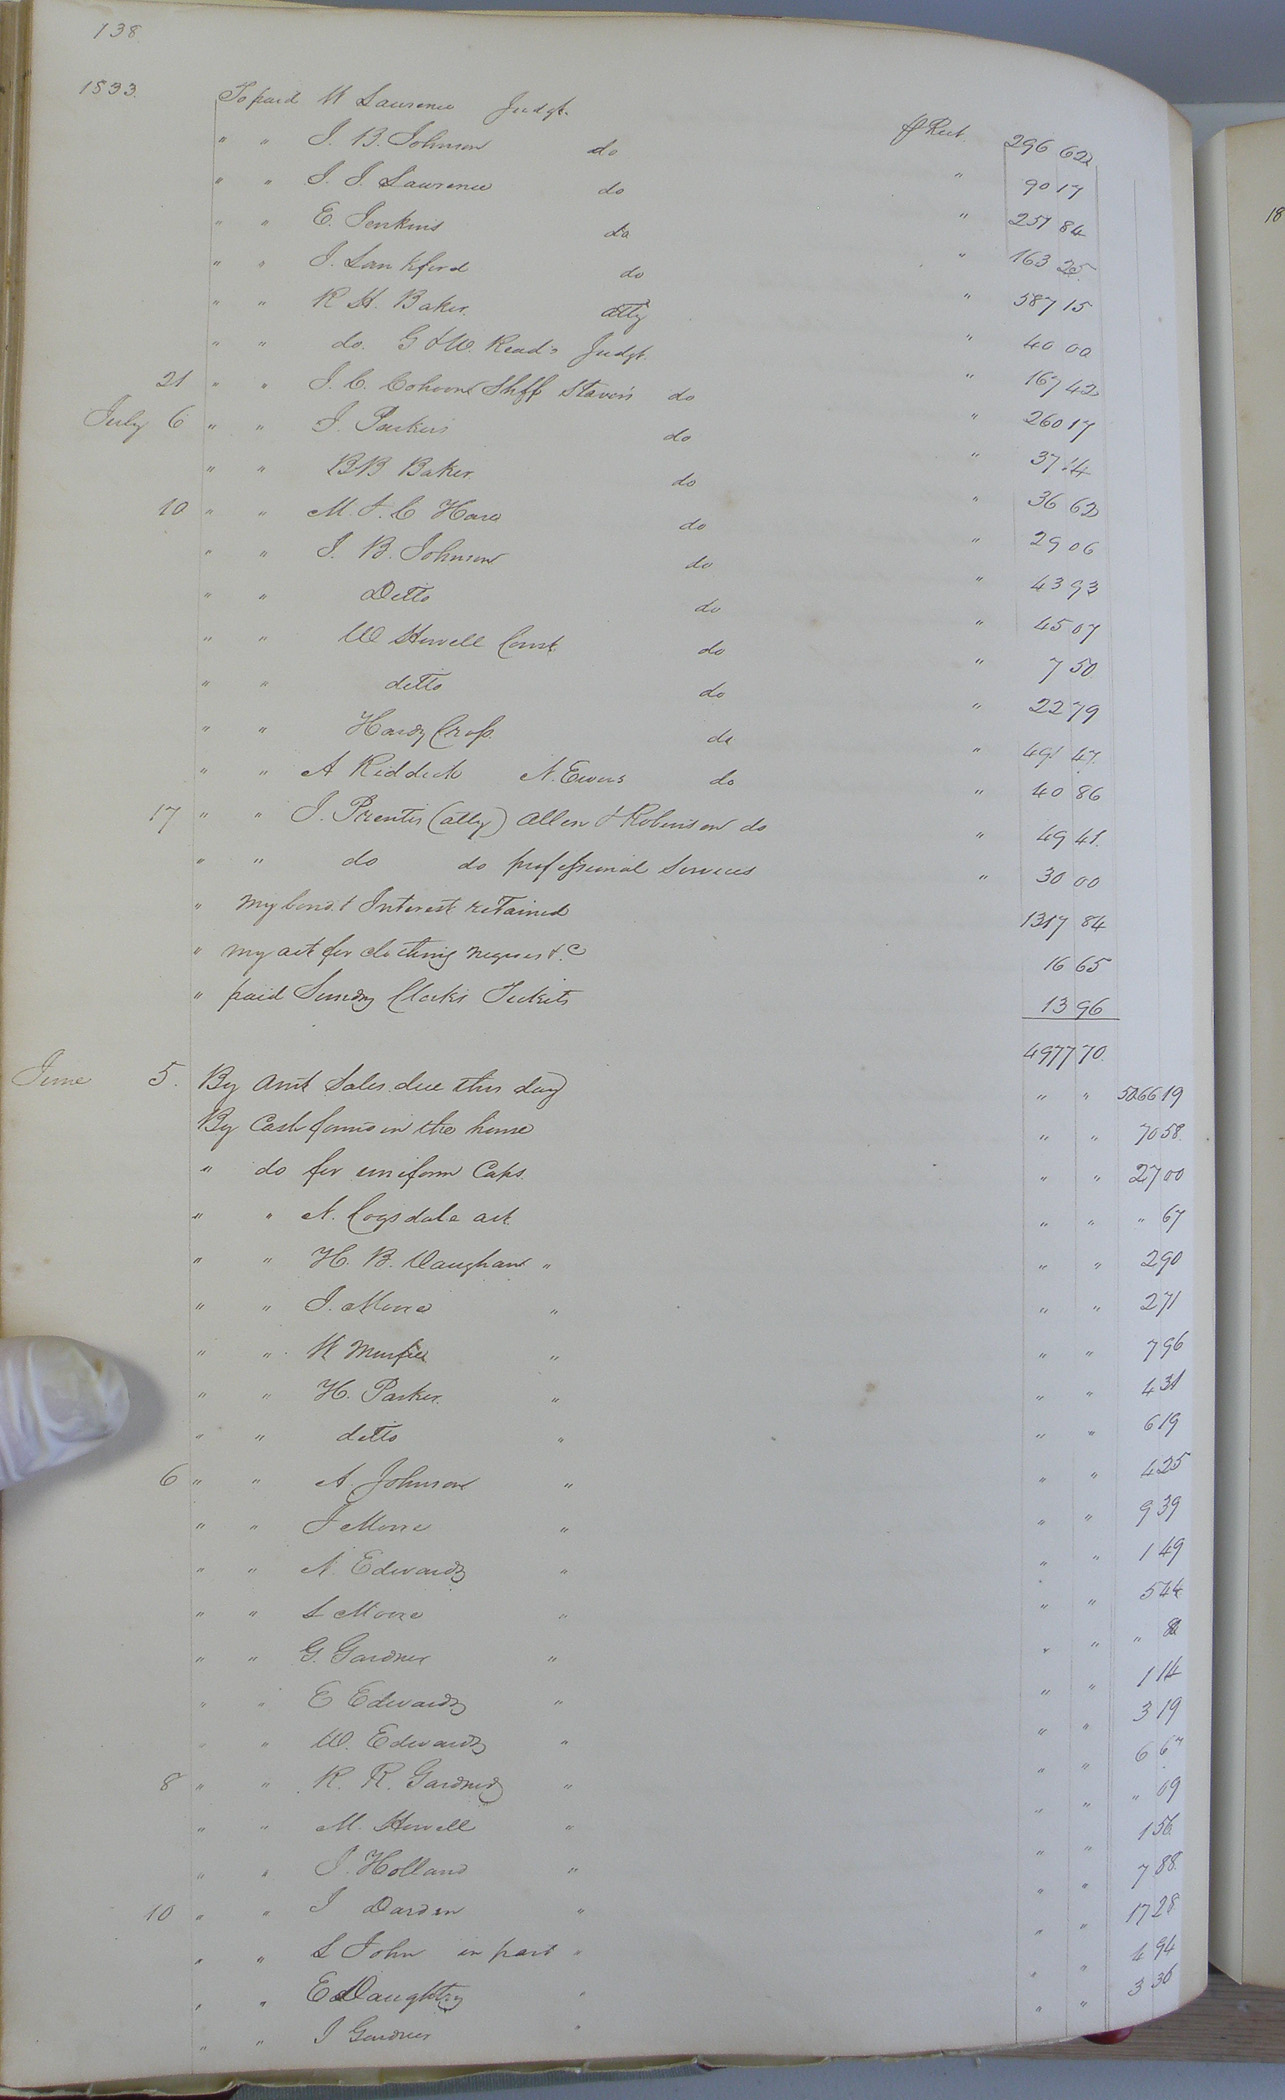 138
1833. To paid W Laurence Judgt. pr Rect. 296 62
" " J. B. Johnson do " 90 17
" " J. J. Laurence do " 257 84
" " E. Jenkins do " 163 25
" " J. Lankford do " 587 15
" " R H. Baker atty " 40 00
" " do. G & W. Read's Judgt. " 167 42
21 " " J. C. Cohoon Shff do " 260 17
July 6 " " J. Parkers do " 37 14
" " BB Baker do " 36 62
10 " " M. & C Hare do " 29 06
" " J. B. Johnson do " 43 93
" " Ditto do " 45 07
" " W Howell Const do " 7 50
" " ditto do " 22 79
" " Hardy Cross do " 491 47
" " A Riddick N. Ewers do " 40 86
17 " " J. Prentis (atty) Allen & Robinson do " 49 41
" " do do professional Services " 30 00
" my bond & Interest retained 1317 84
" my act for clothing negroes &c 16 65
" paid Sundry Clerks Tickets 13 96
4977 70
June 5. By amt Sales due this day " " 5266 19
By Cash found in the house " " 70 58
" do for uniform Caps. " " 27 00
" " N. Cogsdale act " " " 67
" " H. B. Vaughan " " " 2 90
" " J. Moore " " " 2 71
" " W Murfee " " " 7 96
" " H. Parker " " " 4 31
" " ditto " " " 6 19
6 " " A. Johnson " " " 4 25
" " J Moore " " " 9 39
" " N. Edwards " " " 1 49
" " S Moore " " " 5 44
" " G. Gardner " " " "
" " E Edwards " " " 1 14
" " W. Edwards " " " 3 19
8 " " R. R. Gardner " " " 6 67
" " M. Howell " " " " 09
" " J. Holland " " " 1 56
10 " " J Darden " " " 7 88
" " S John in part " " " 17 28
" " E Daughtry " " " 4 94
" " J Gardner " " " 3 36
18